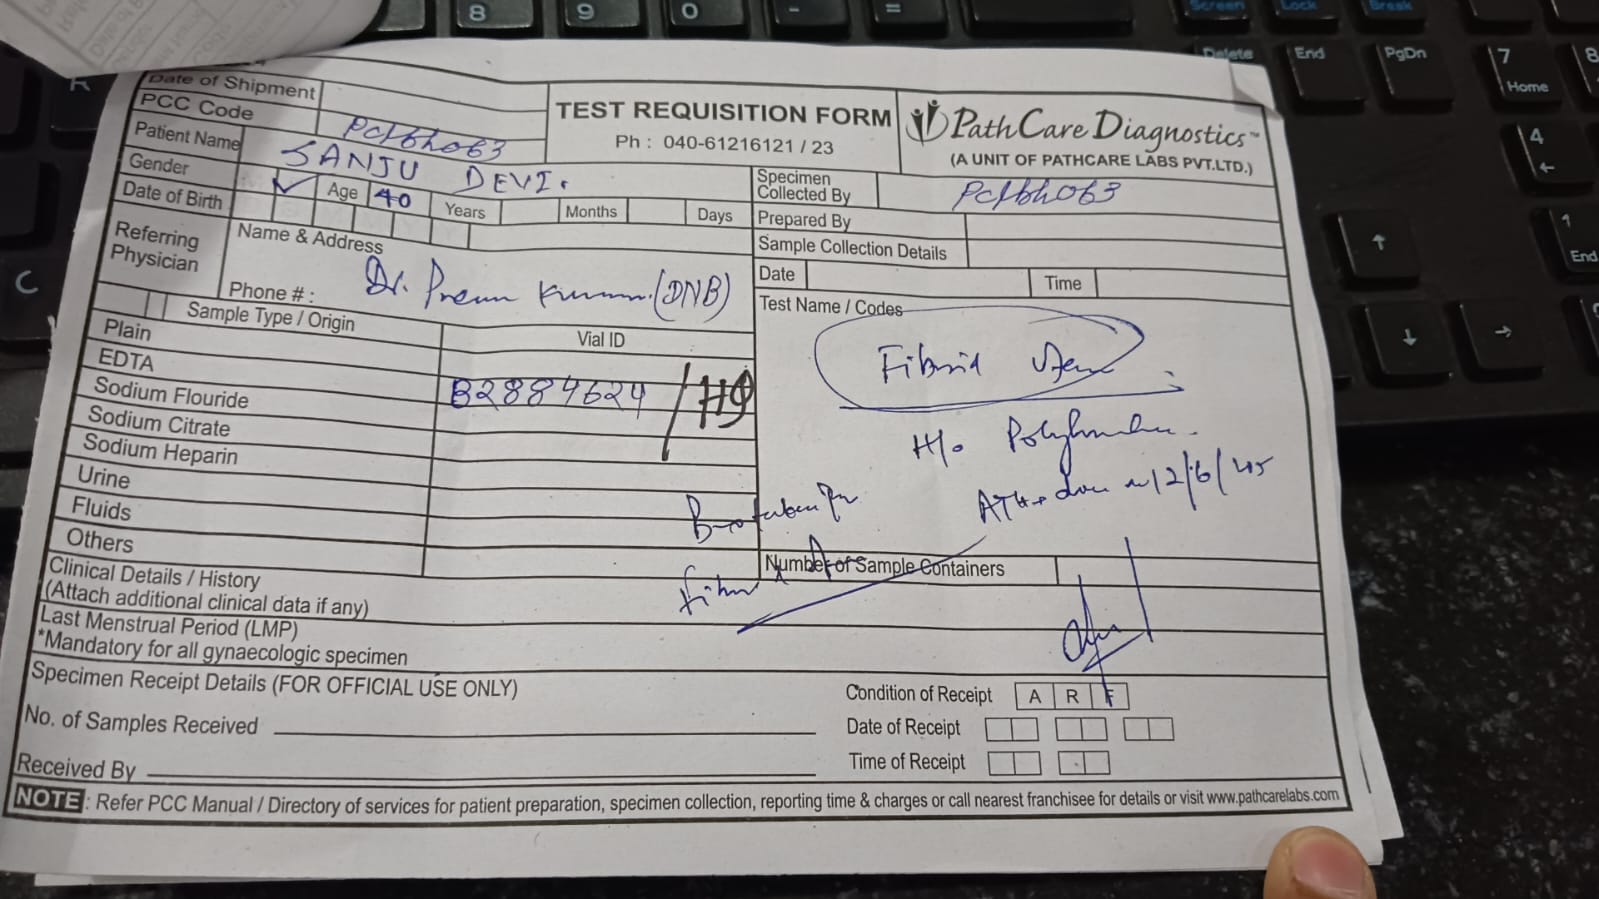 8 9 0 - =
Screen Lock Break
Delete End PgDn 7 Home 8
4
1 End
C
Date of Shipment
PCC Code
TEST REQUISITION FORM
Ph : 040-61216121 / 23
PathCare Diagnostics™
(A UNIT OF PATHCARE LABS PVT.LTD.)
Patient Name SANJU DEVI.
Gender ✓ Age 40 Years Months Days
Date of Birth
Specimen
Collected By
Prepared By
Sample Collection Details
Date Time
Referring
Physician
Name & Address
Dr. Prem Kumar (DNB)
Phone # :
Sample Type / Origin Vial ID
Plain
EDTA
Sodium Flouride B2884624 /
Sodium Citrate
Sodium Heparin
Urine
Fluids
Others
Test Name / Codes
Fibroid
H/o
done 12/6/
Number of Sample Containers
Clinical Details / History
(Attach additional clinical data if any)
Last Menstrual Period (LMP)
*Mandatory for all gynaecologic specimen
Specimen Receipt Details (FOR OFFICIAL USE ONLY)
No. of Samples Received
Received By
Condition of Receipt A R F
Date of Receipt
Time of Receipt
NOTE : Refer PCC Manual / Directory of services for patient preparation, specimen collection, reporting time & charges or call nearest franchisee for details or visit www.pathcarelabs.com